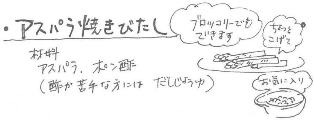 ・アスパラ焼きびたし
ブロッコリーでも
できます
ちょっと
こげて
材料
アスパラ、ポン酢
(酢が苦手な方には だしじょうゆ)
お気に入り